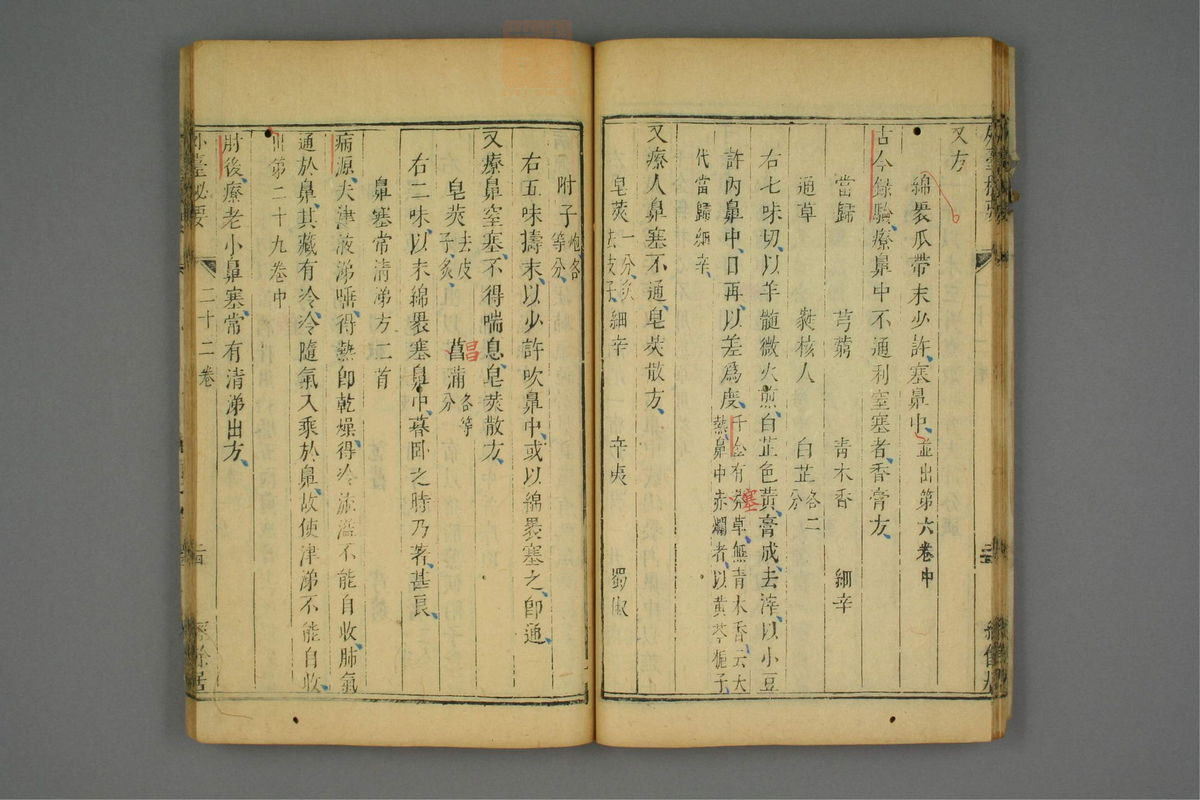 又方
綿褁瓜帶末少許塞鼻中並出第六卷中
古今録驗療鼻中不通利窒塞者香膏方
當歸 芎藭 青木香 細辛
通草 蕤核人 白芷各二分
右七味切以羊髓微火煎白芷色黃膏成去滓以小豆
許內鼻中日再以差爲度千金有莽草無青木香云大
熱鼻中赤爛者以黃芩梔子
代當歸細辛
又療人鼻塞不通皂莢散方
皂莢一分炙去皮子 細辛 辛夷 蜀椒
附子炮各等分
右五味擣末以少許吹鼻中或以綿褁塞之卽通
又療鼻窒塞不得喘息皂莢散方
皂莢去皮子炙 菖蒲各等分
昌
塞
右二味以末綿褁塞鼻中暮卧之時乃著甚良
鼻塞常清涕方二首
病源夫津液涕唾得熱卽乾燥得冷流溢不能自收肺氣
通於鼻其藏有冷冷隨氣入乘於鼻故使津涕不能自收
出第二十九卷中
肘後療老小鼻塞常有清涕出方
外臺秘要 二十二卷 經餘居